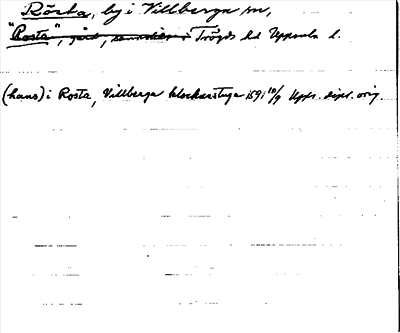 Rösta, by i Villberga sn,
"Rosta", gård, Trögds hd Uppsala l.
(hans) i Rosta, Villberga klockarstuga 1591 10/9 Upps. dipl. orig.